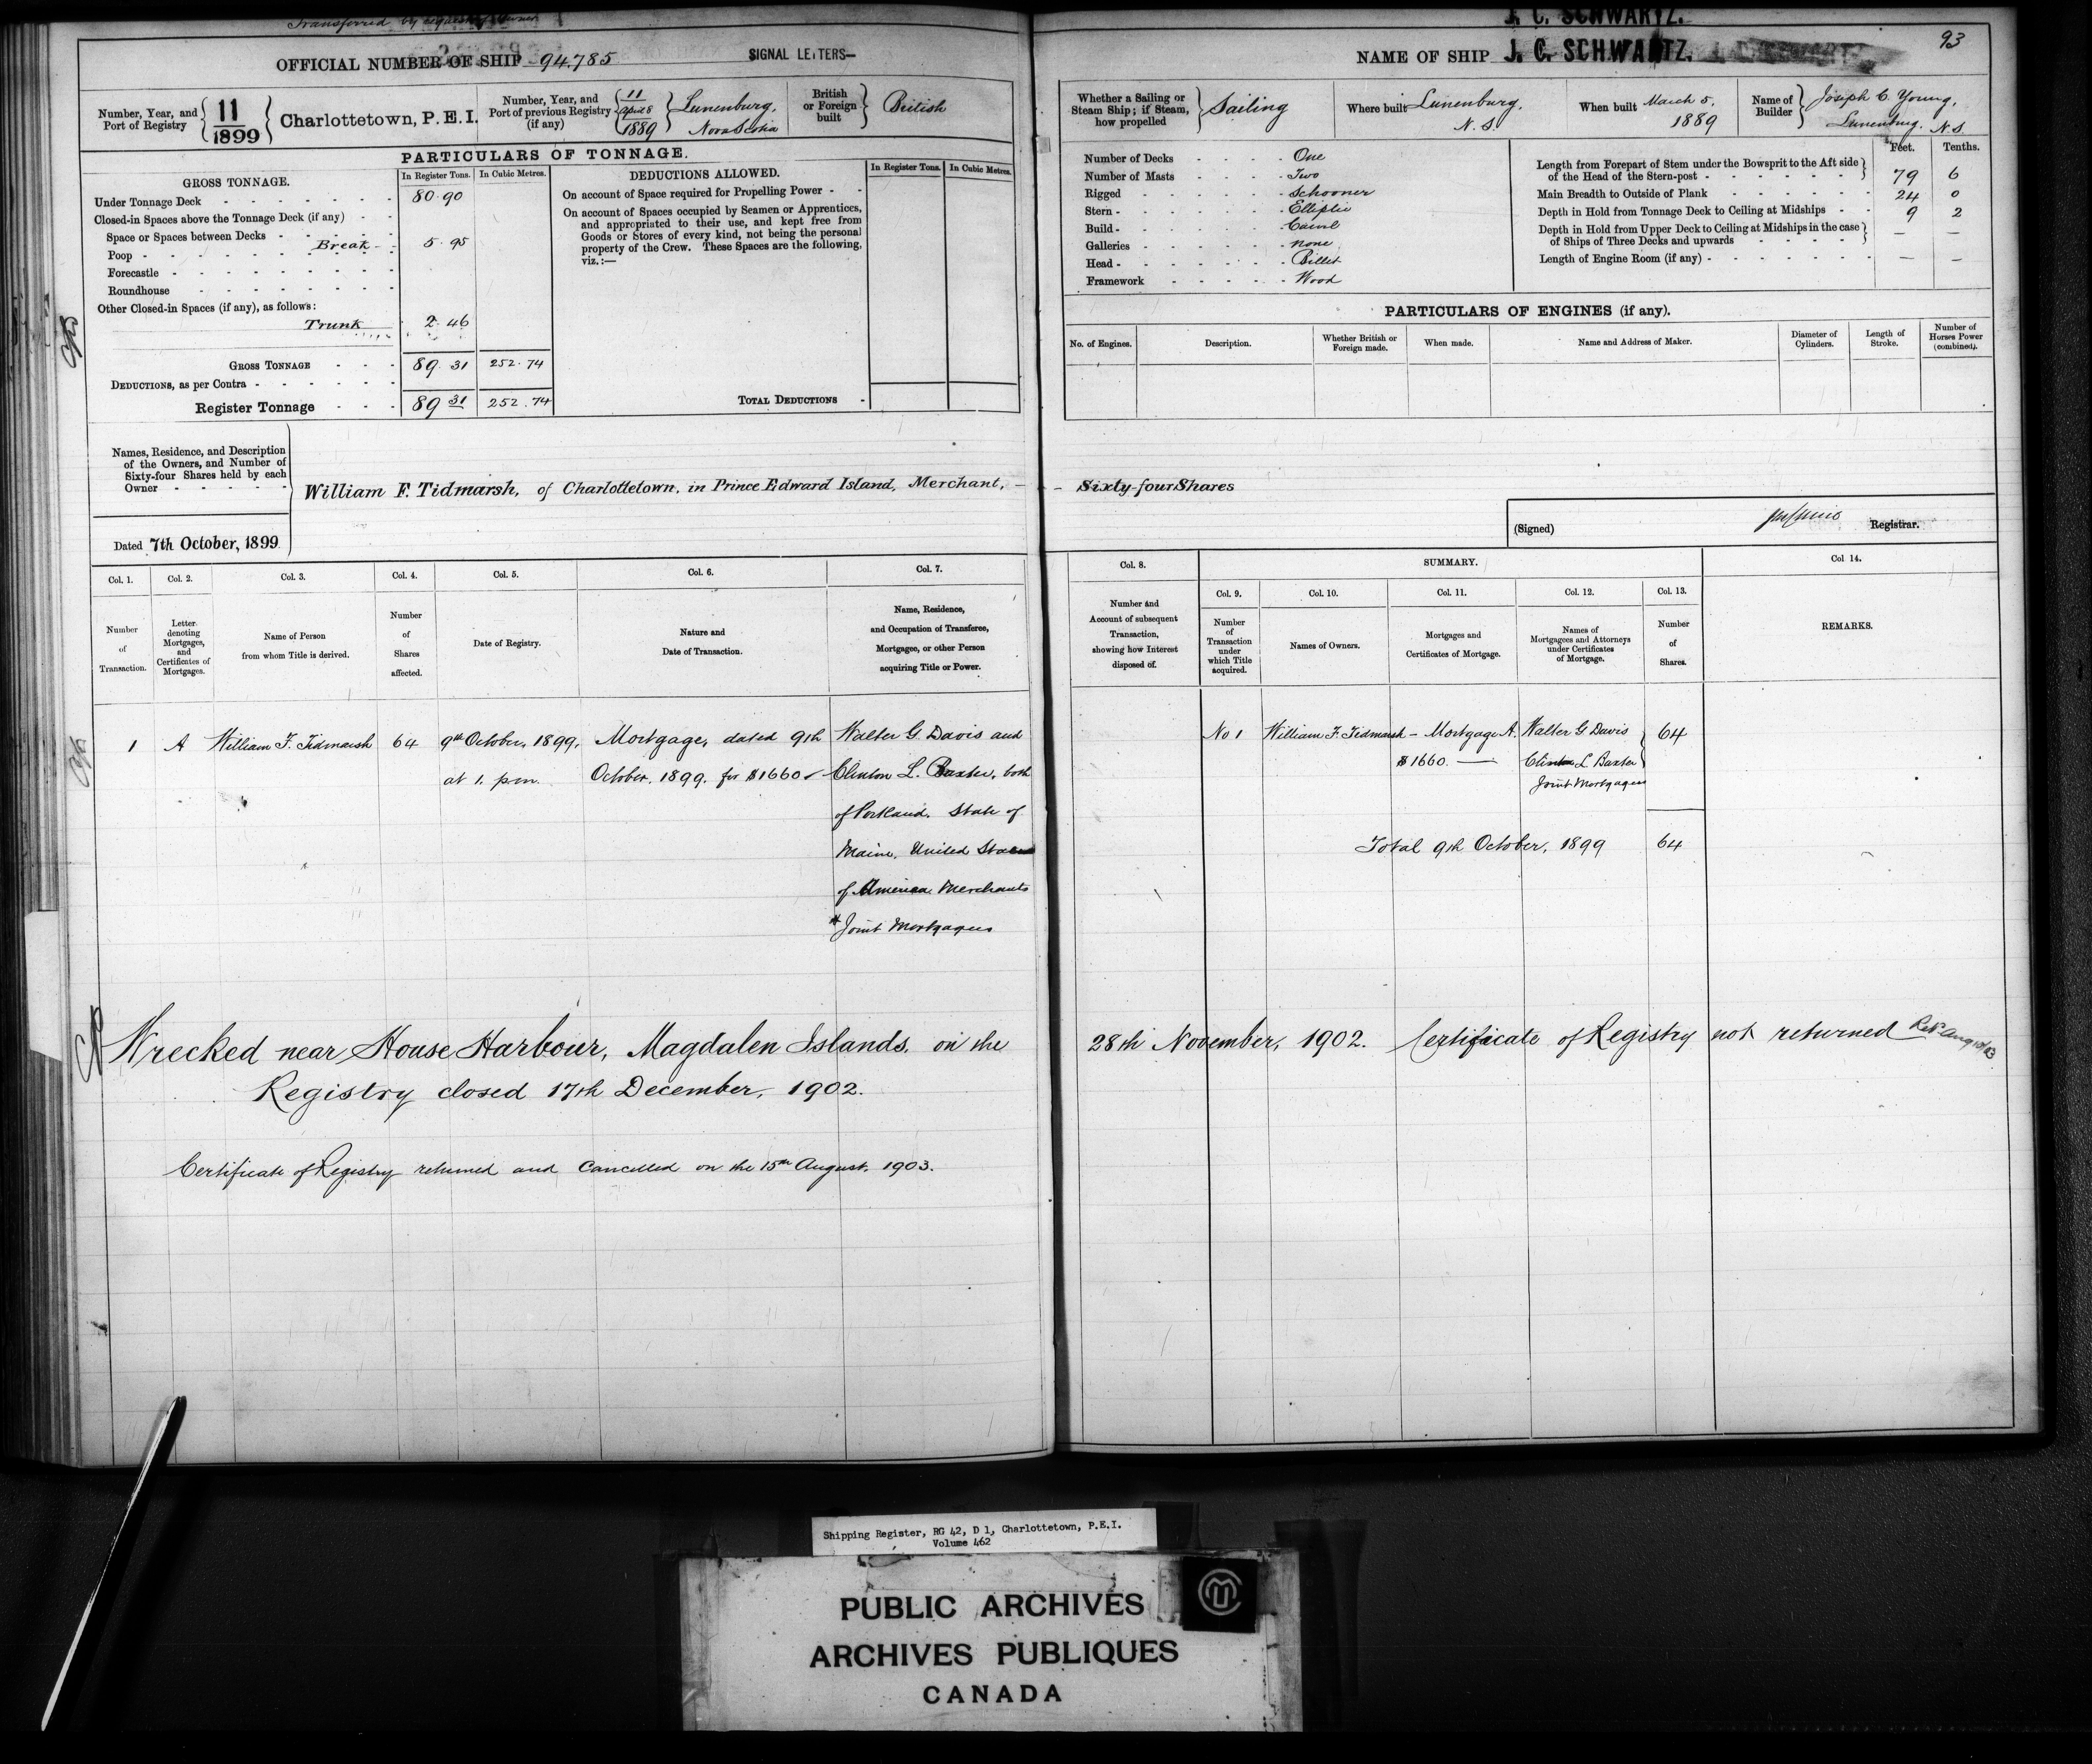 Transferred by request of Owner
J. C. SCHWARTZ.
OFFICIAL NUMBER OF SHIP 94.785
SIGNAL LETTERS—
NAME OF SHIP J. C. SCHWARTZ.
93
Number, Year, and Port of Registry { 11 / 1899 } Charlottetown, P.E.I.
Number, Year, and Port of previous Registry (if any) { 11 April 8 1889 } Lunenburg, Nova Scotia
British or Foreign built } British
Whether a Sailing or Steam Ship; if Steam, how propelled } Sailing
Where built Lunenburg, N. S.
When built March 5, 1889
Name of Builder } Joseph C. Young, Lunenburg, N.S.
PARTICULARS OF TONNAGE.
GROSS TONNAGE.
In Register Tons.
In Cubic Metres.
Under Tonnage Deck 80.90
Closed-in Spaces above the Tonnage Deck (if any)
Space or Spaces between Decks
Poop Break 5.95
Forecastle
Roundhouse
Other Closed-in Spaces (if any), as follows:
Trunk 2.46
GROSS TONNAGE 89.31 252.74
DEDUCTIONS, as per Contra
Register Tonnage 89 31 252.74
DEDUCTIONS ALLOWED.
In Register Tons.
In Cubic Metres.
On account of Space required for Propelling Power
On account of Spaces occupied by Seamen or Apprentices,
and appropriated to their use, and kept free from
Goods or Stores of every kind, not being the personal
property of the Crew. These Spaces are the following,
viz.:—
TOTAL DEDUCTIONS
Number of Decks One
Number of Masts Two
Rigged Schooner
Stern Elliptic
Build Carvel
Galleries none
Head Billet
Framework Wood
Feet. Tenths.
Length from Forepart of Stem under the Bowsprit to the Aft side
of the Head of the Stern-post 79 6
Main Breadth to Outside of Plank 24 0
Depth in Hold from Tonnage Deck to Ceiling at Midships 9 2
Depth in Hold from Upper Deck to Ceiling at Midships in the case
of Ships of Three Decks and upwards — —
Length of Engine Room (if any) — —
PARTICULARS OF ENGINES (if any).
No. of Engines.
Description.
Whether British or Foreign made.
When made.
Name and Address of Maker.
Diameter of Cylinders.
Length of Stroke.
Number of Horses Power (combined).
Names, Residence, and Description
of the Owners, and Number of
Sixty-four Shares held by each
Owner
William F. Tidmarsh, of Charlottetown, in Prince Edward Island, Merchant, — Sixty-four Shares
Dated 7th October, 1899
(Signed) Registrar.
Col. 1.
Number of Transaction.
Col. 2.
Letter denoting Mortgages, and Certificates of Mortgages.
Col. 3.
Name of Person from whom Title is derived.
Col. 4.
Number of Shares affected.
Col. 5.
Date of Registry.
Col. 6.
Nature and Date of Transaction.
Col. 7.
Name, Residence, and Occupation of Transferee, Mortgagee, or other Person acquiring Title or Power.
Col. 8.
Number and Account of subsequent Transaction, showing how Interest disposed of.
SUMMARY.
Col. 9.
Number of Transaction under which Title acquired.
Col. 10.
Names of Owners.
Col. 11.
Mortgages and Certificates of Mortgage.
Col. 12.
Names of Mortgagees and Attorneys under Certificates of Mortgage.
Col. 13.
Number of Shares.
Col 14.
REMARKS.
1 A William F. Tidmarsh 64 9th October, 1899, Mortgage, dated 9th Walter G. Davis and
at 1. p.m. October. 1899. for $1660 Clinton L. Baxter, both
of Portland. State of
Maine, United States
of America Merchants
Joint Mortgagees
No 1 William F. Tidmarsh — Mortgage A. Walter G Davis 64
$1660. — Clinton L Baxter
Joint Mortgagees
Total 9th October, 1899 64
Wrecked near House Harbour, Magdalen Islands, on the 28th November, 1902. Certificate of Registry not returned Ret. Aug 15/03
Registry closed 17th December, 1902.
Certificate of Registry returned and Cancelled on the 15th August, 1903.
Shipping Register, RG 42, D 1, Charlottetown, P.E.I.
Volume 462
PUBLIC ARCHIVES
ARCHIVES PUBLIQUES
CANADA